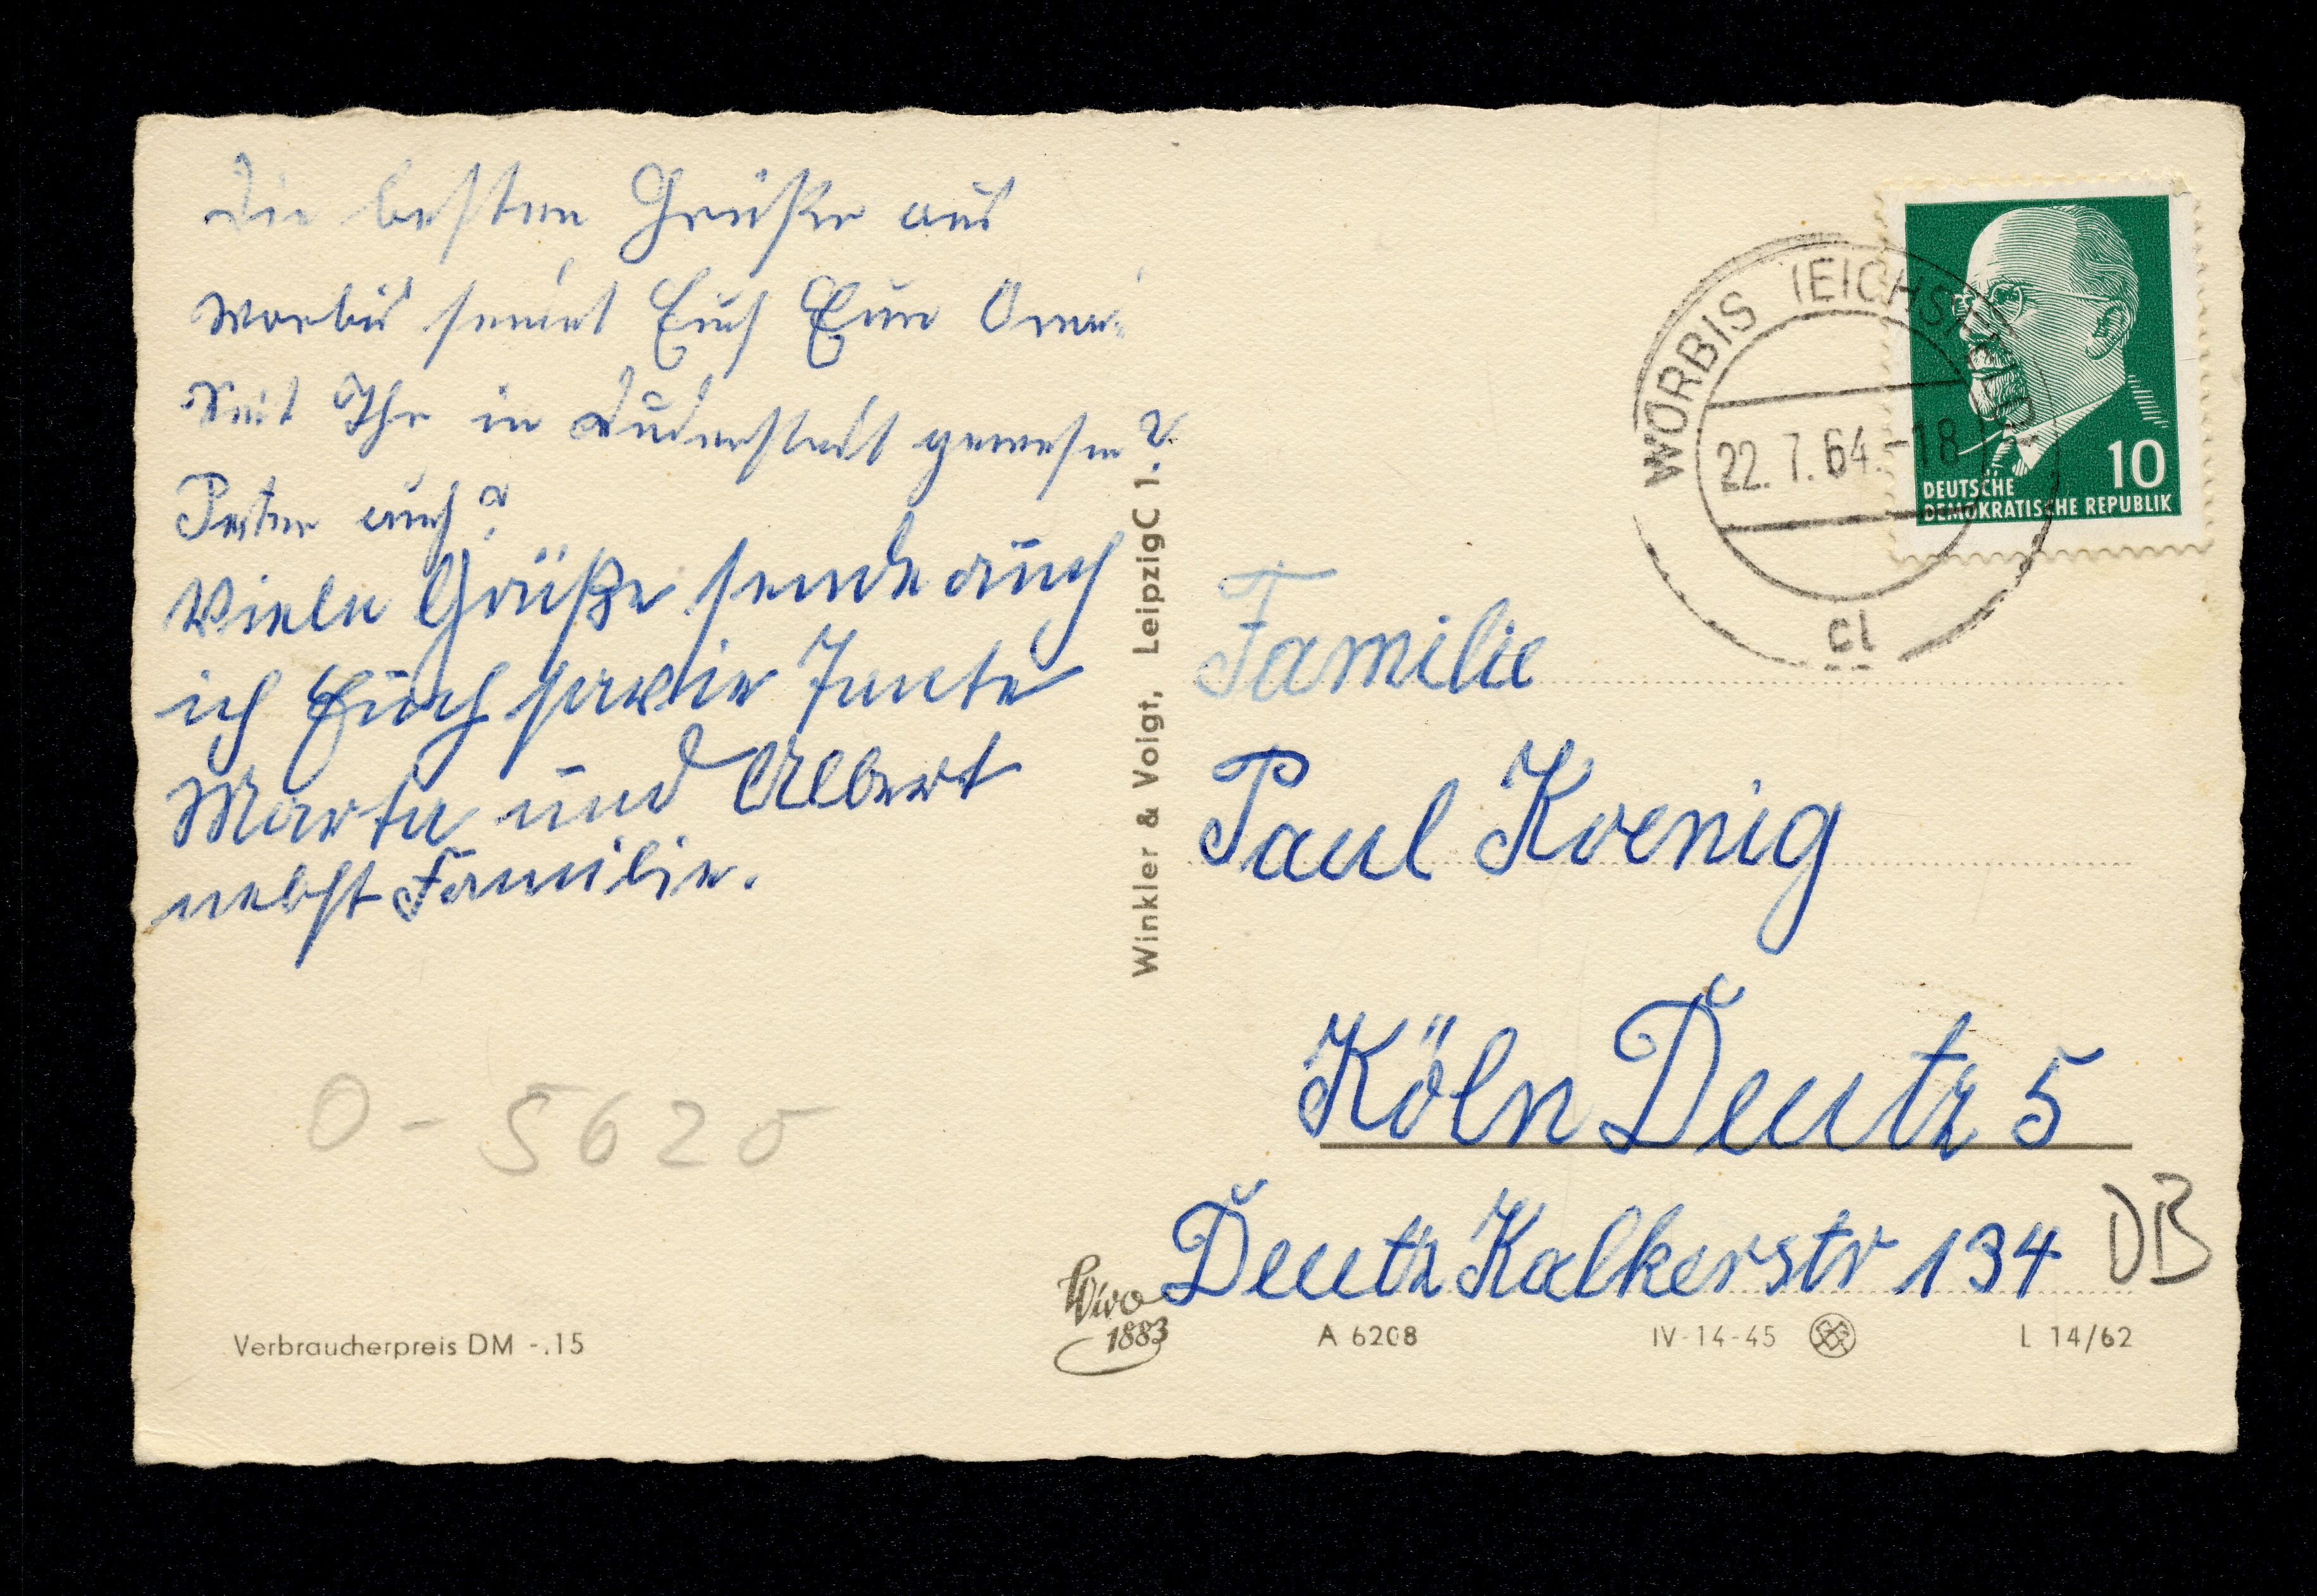 Die besten Grüße aus
Worbis sendet Euch Eure Oma.
Seit Ihr in Duderstadt gewesen?
Peter auch?
Viele Grüße sende auch
ich Euch sowie Tante
Marta und Albert
nebst Familie.
O - 5620
Verbraucherpreis DM -.15
Winkler & Voigt, Leipzig C 1.
Wivo
1883
WORBIS (EICHSFELD)
22.7.64.-18
c1
10
DEUTSCHE
DEMOKRATISCHE REPUBLIK
Familie
Paul Koenig
Köln Deutz 5
Deutz Kalkerstr 134
DB
A 6208
IV-14-45
L 14/62